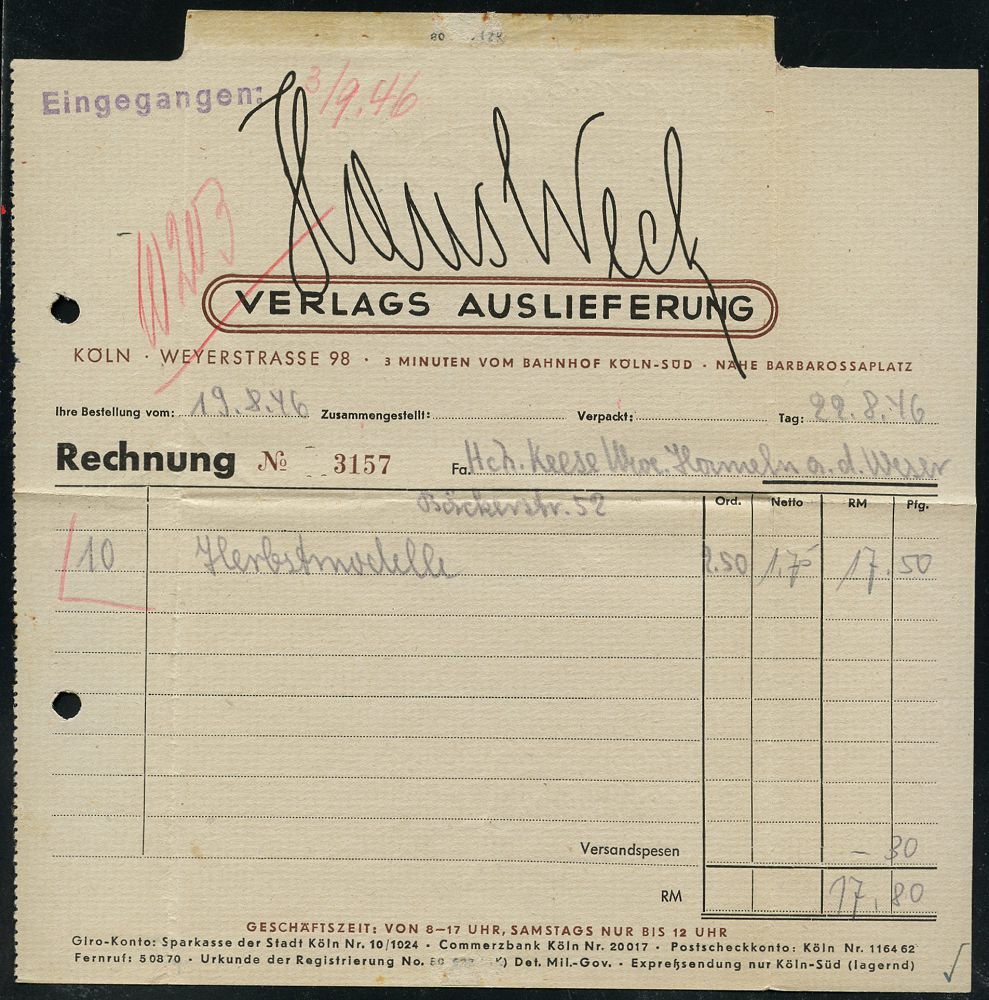 Eingegangen: 3/9.46
Hans Weck
VERLAGS AUSLIEFERUNG
KÖLN · WEYERSTRASSE 98 · 3 MINUTEN VOM BAHNHOF KÖLN-SÜD · NÄHE BARBAROSSAPLATZ
Ihre Bestellung vom: 19.8.46 Zusammengestellt: Verpackt: Tag: 22.8.46
Rechnung № 3157 Fa. Hch. Keese Wwe. Hameln a. d. Weser
Bäckerstr. 52
Ord. Netto RM Pfg.
10 Herbstmodelle 2.50 1.75 17.50
Versandspesen – 30
RM 17.80
GESCHÄFTSZEIT: VON 8–17 UHR, SAMSTAGS NUR BIS 12 UHR
Giro-Konto: Sparkasse der Stadt Köln Nr. 10/1024 · Commerzbank Köln Nr. 20017 · Postscheckkonto: Köln Nr. 116462
Fernruf: 50870 · Urkunde der Registrierung No. K) Det. Mil.-Gov. · Expreßsendung nur Köln-Süd (lagernd)